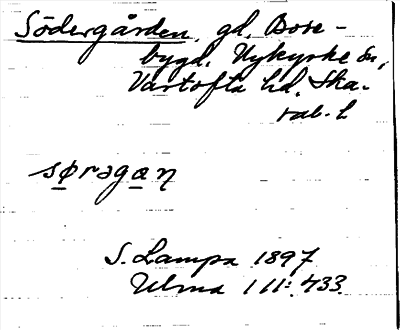 Södergården, gd, Bose-
bygd, Nykyrke sn,
Vartofta hd, Ska-
rab. l
sørəgan
S. Lampa 1897
Ulma 111:433